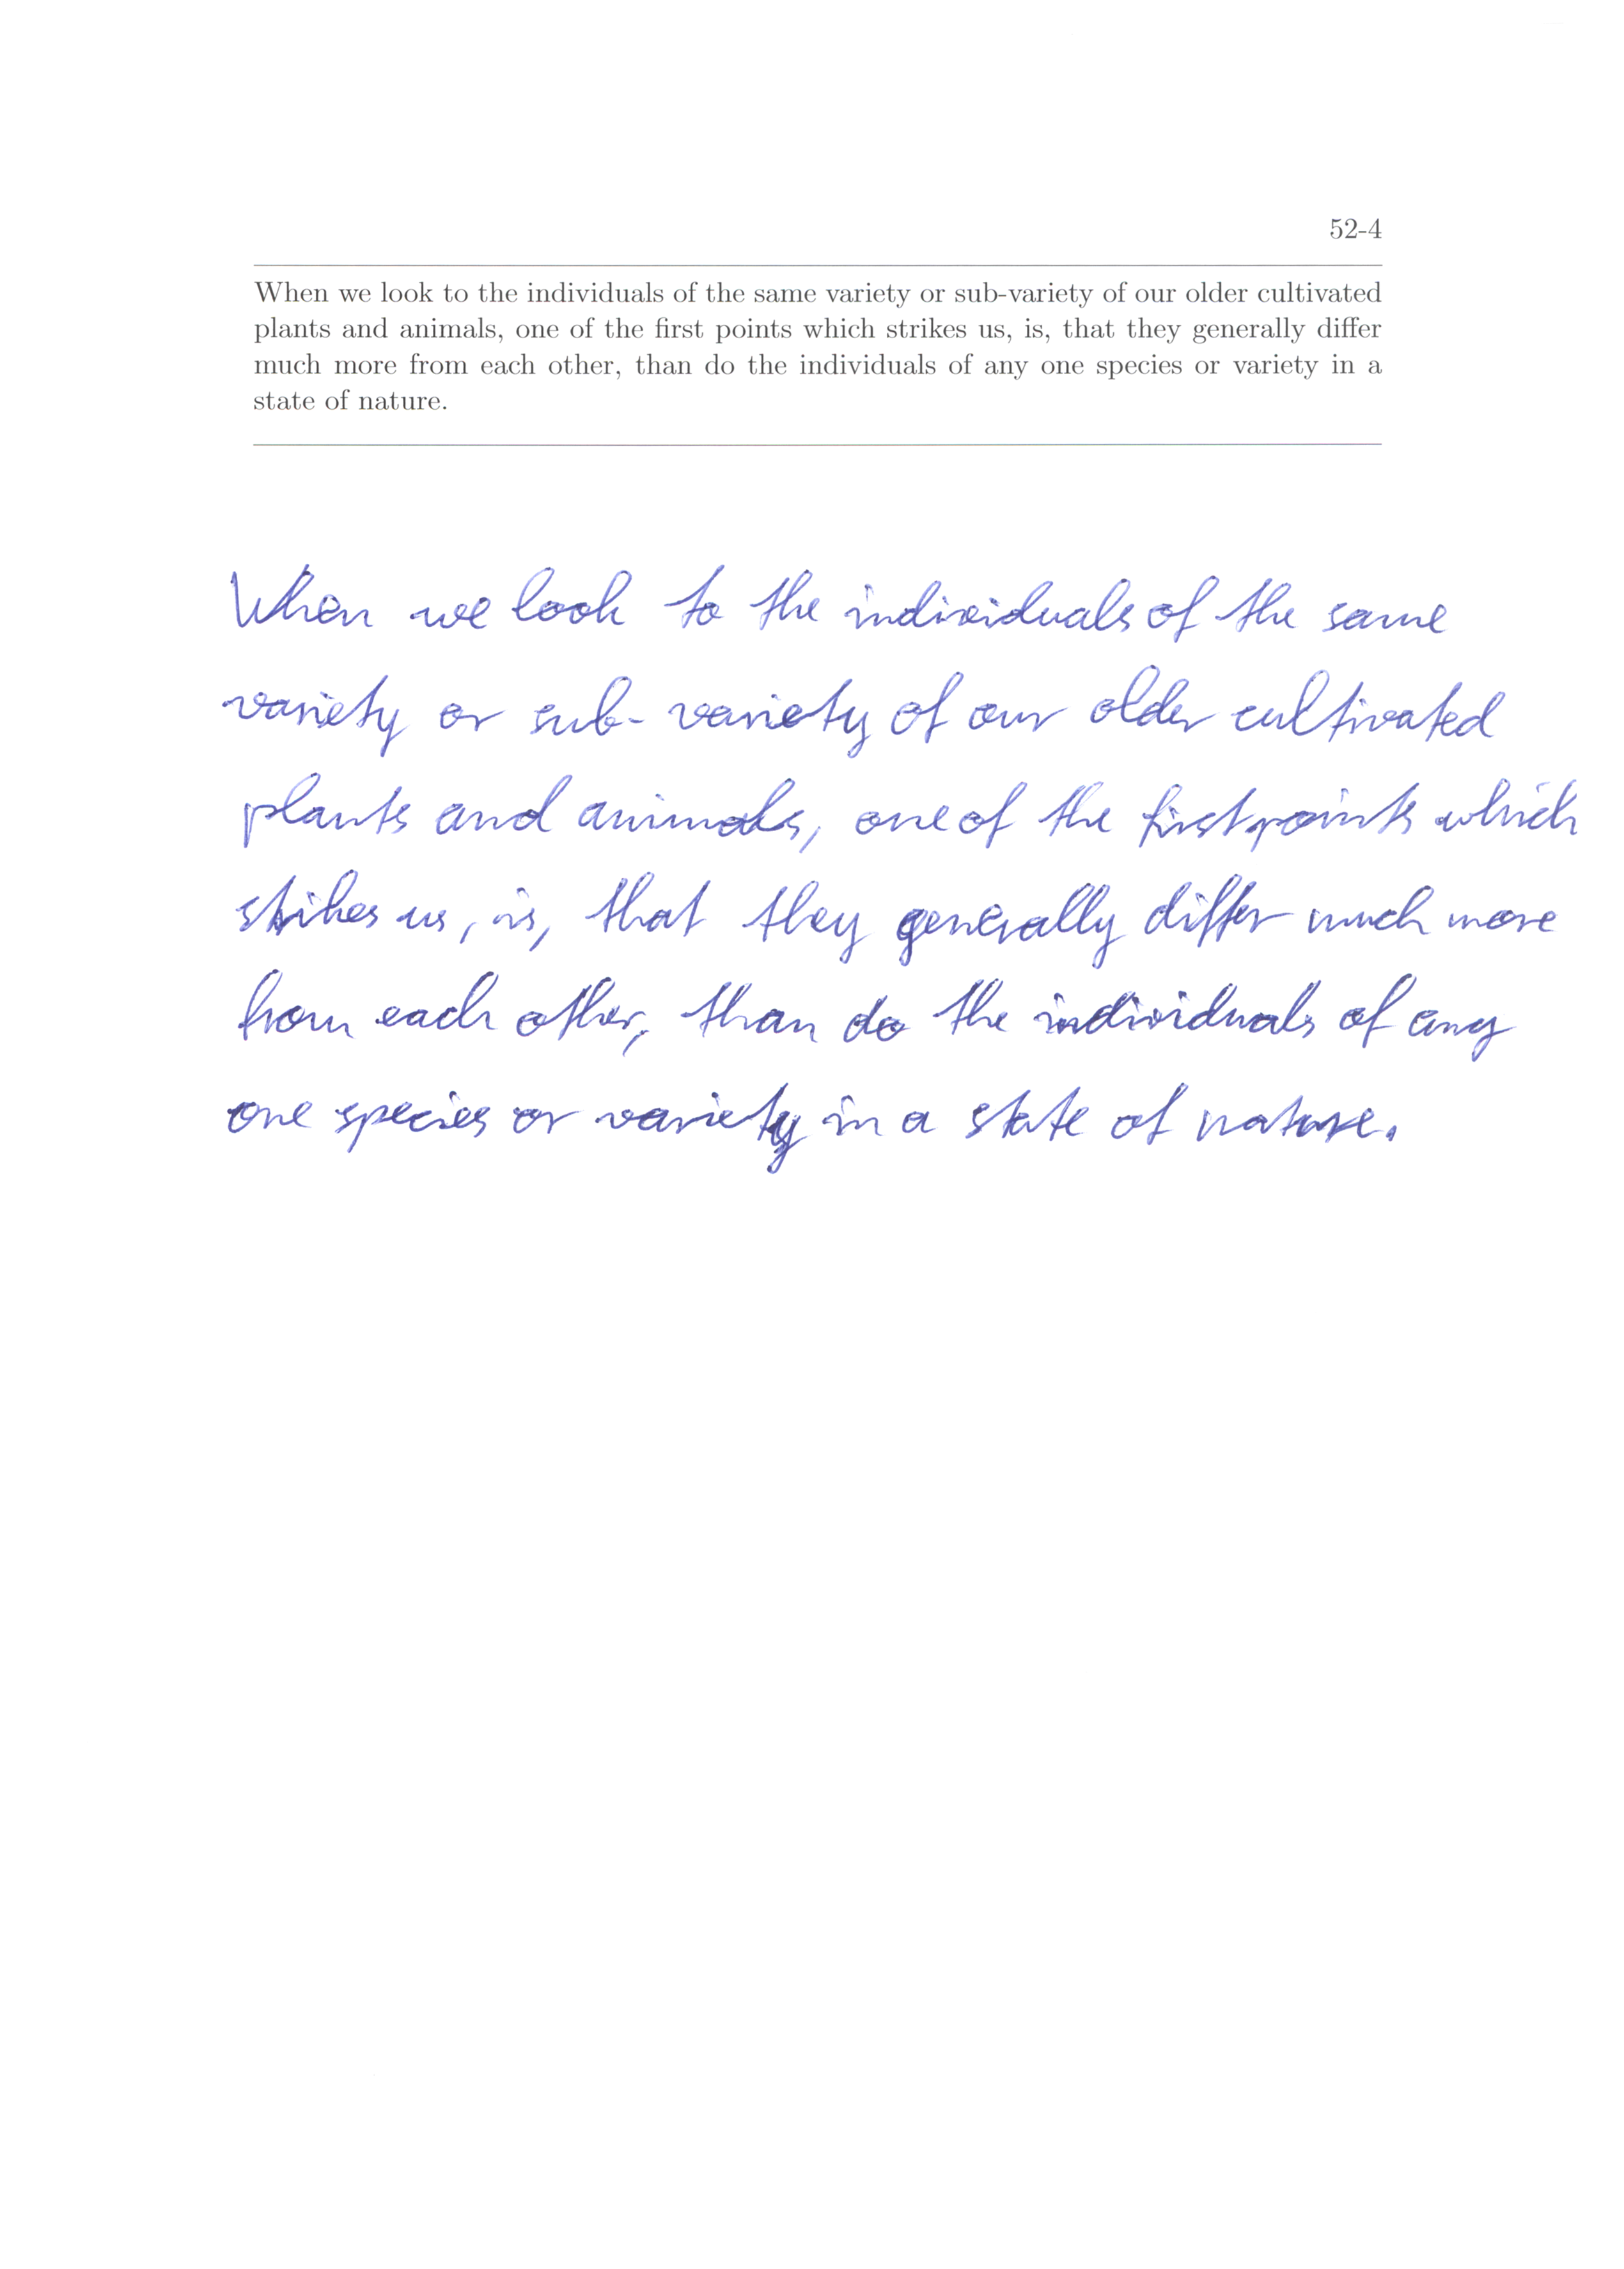 52-4
When we look to the individuals of the same variety or sub-variety of our older cultivated
plants and animals, one of the first points which strikes us, is, that they generally differ
much more from each other, than do the individuals of any one species or variety in a
state of nature.
When we look to the individuals of the same
variety or sub-variety of our older cultivated
plants and animals, one of the first points which
strikes us, is, that they generally differ much more
from each other, than do the individuals of any
one species or variety in a state of nature.